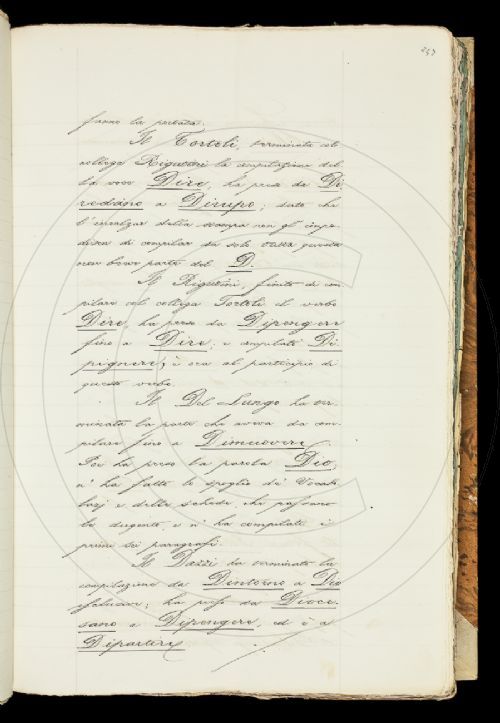 247
fanno la parola.
Il Tortoli, terminata col
collega Rigutini la compilazione del
la voce Dire, ha preso da Di
redano a Dirupo; dato che
l'incalzar della stampa non gl'impe-
disca di compilar da solo tutta questa
non breve parte del D.
Il Rigutini, finito di com
pilare col collega Tortoli il verbo
Dire, ha preso da Dipengere
fino a Dire; e compilato Di
pignere; è ora al participio di
questo verbo.
Il Del Lungo ha ter-
minata la parte che aveva da com-
pilare fino a Dimuovere
Poi ha preso la parola Dio,
n'ha fatto lo spoglio de' Vocab
larj e delle schede, che passano
le dugento, e n'ha compilati i
primi sei paragrafi.
Il Dazzi ha terminato la
compilazione da Dintorno a Dio
; ha preso da Dioce-
sano a Dipengere, ed è a
Dipartire